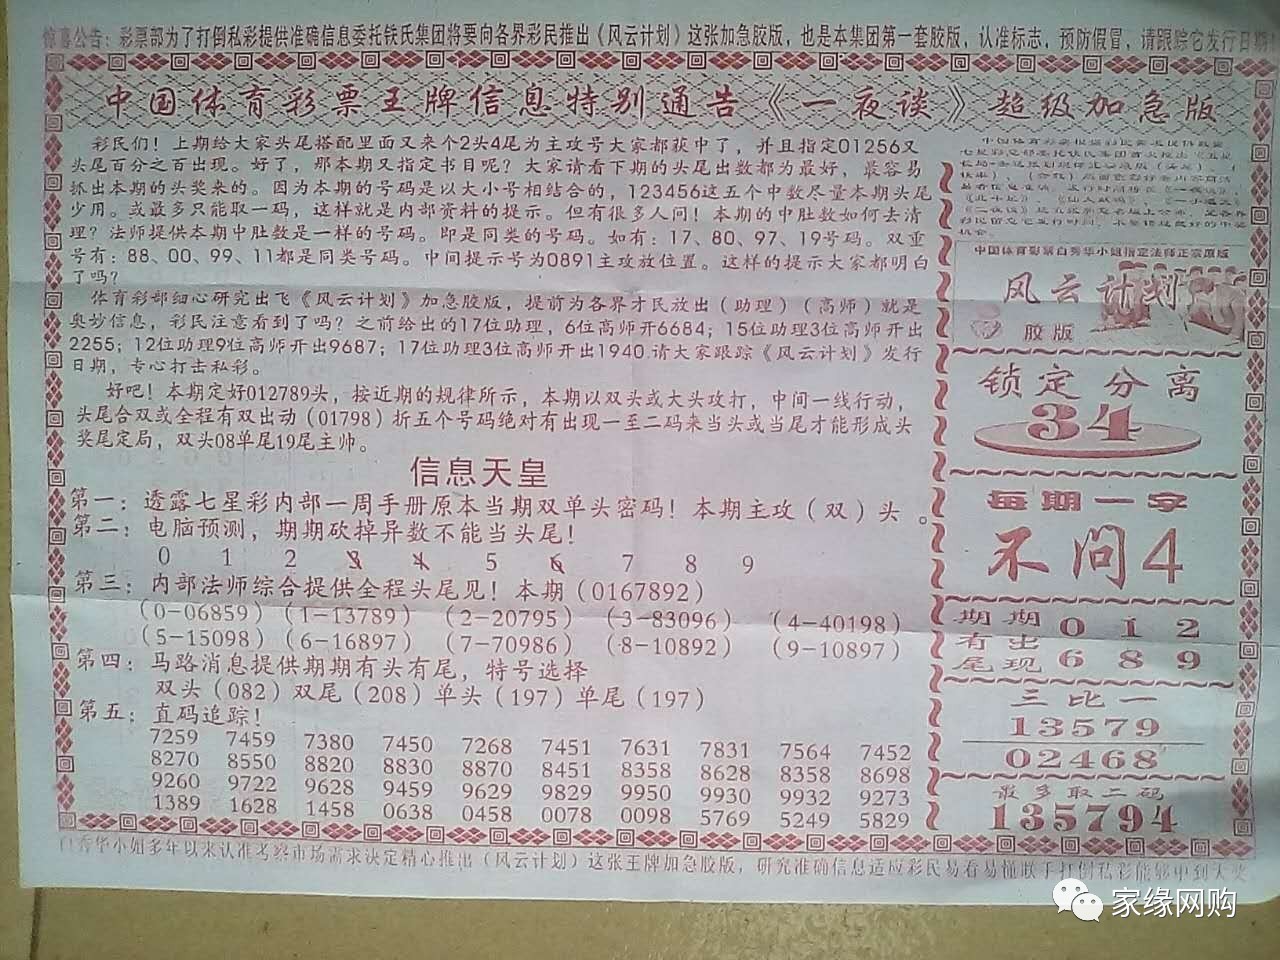 惊喜公告：彩票部为了打倒私彩提供准确信息委托铁氏集团将要向各界彩民推出《风云计划》这张加急胶版，也是本集团第一套胶版，认准标志，预防假冒，请跟踪它发行日期！
中国体育彩票王牌信息特别通告《一夜谈》超级加急版
彩民们！上期给大家头尾搭配里面又来个2头4尾为主攻号大家都获中了，并且指定01256又
头尾百分之百出现。好了，那本期又指定书目呢？大家请看下期的头尾出数都为最好，最容易
抓出本期的头奖来的。因为本期的号码是以大小号相结合的，123456这五个中数尽量本期头尾
少用。或最多只能取一码，这样就是内部资料的提示。但有很多人问！本期的中肚数如何去清
理？法师提供本期中肚数是一样的号码。即是同类的号码。如有：17、80、97、19号码。双重
号有：88、00、99、11都是同类号码。中间提示号为0891主攻放位置。这样的提示大家都明白
了吗？
体育彩部细心研究出飞《风云计划》加急胶版，提前为各界才民放出（助理）（高师）就是
奥妙信息，彩民注意看到了吗？之前给出的17位助理，6位高师开6684；15位助理3位高师开出
2255；12位助理9位高师开出9687；17位助理3位高师开出1940.请大家跟踪《风云计划》发行
日期，专心打击私彩。
好吧！本期定好012789头，按近期的规律所示，本期以双头或大头攻打，中间一线行动，
头尾合双或全程有双出动（01798）折五个号码绝对有出现一至二码来当头或当尾才能形成头
奖尾定局，双头08单尾19尾主帅。
信息天皇
第一：透露七星彩内部一周手册原本当期双单头密码！本期主攻（双）头 。
第二：电脑预测，期期砍掉异数不能当头尾！
0 1 2 3 4 5 6 7 8 9
第三：内部法师综合提供全程头尾见！本期（0167892）
（0-06859）（1-13789）（2-20795）（3-83096）（4-40198）
（5-15098）（6-16897）（7-70986）（8-10892）（9-10897）
第四：马路消息提供期期有头有尾，特号选择
双头（082）双尾（208）单头（197）单尾（197）
第五：直码追踪！
7259 7459 7380 7450 7268 7451 7631 7831 7564 7452
8270 8550 8820 8830 8870 8451 8358 8628 8358 8698
9260 9722 9628 9459 9629 9829 9950 9930 9932 9273
1389 1628 1458 0638 0458 0078 0098 5769 5249 5829
中国体育彩票白秀华小姐指定法师正宗原版
风云计划
胶版
锁定分离
34
每期一字
不问4
期期 0 1 2
有出
尾现 6 8 9
三比一
13579
02468
最多取二码
135794
白秀华小姐多年以来认准考察市场需求决定精心推出（风云计划）这张王牌加急胶版，研究准确信息适应彩民易看易懂联手打倒私彩能够中到大奖
家缘网购